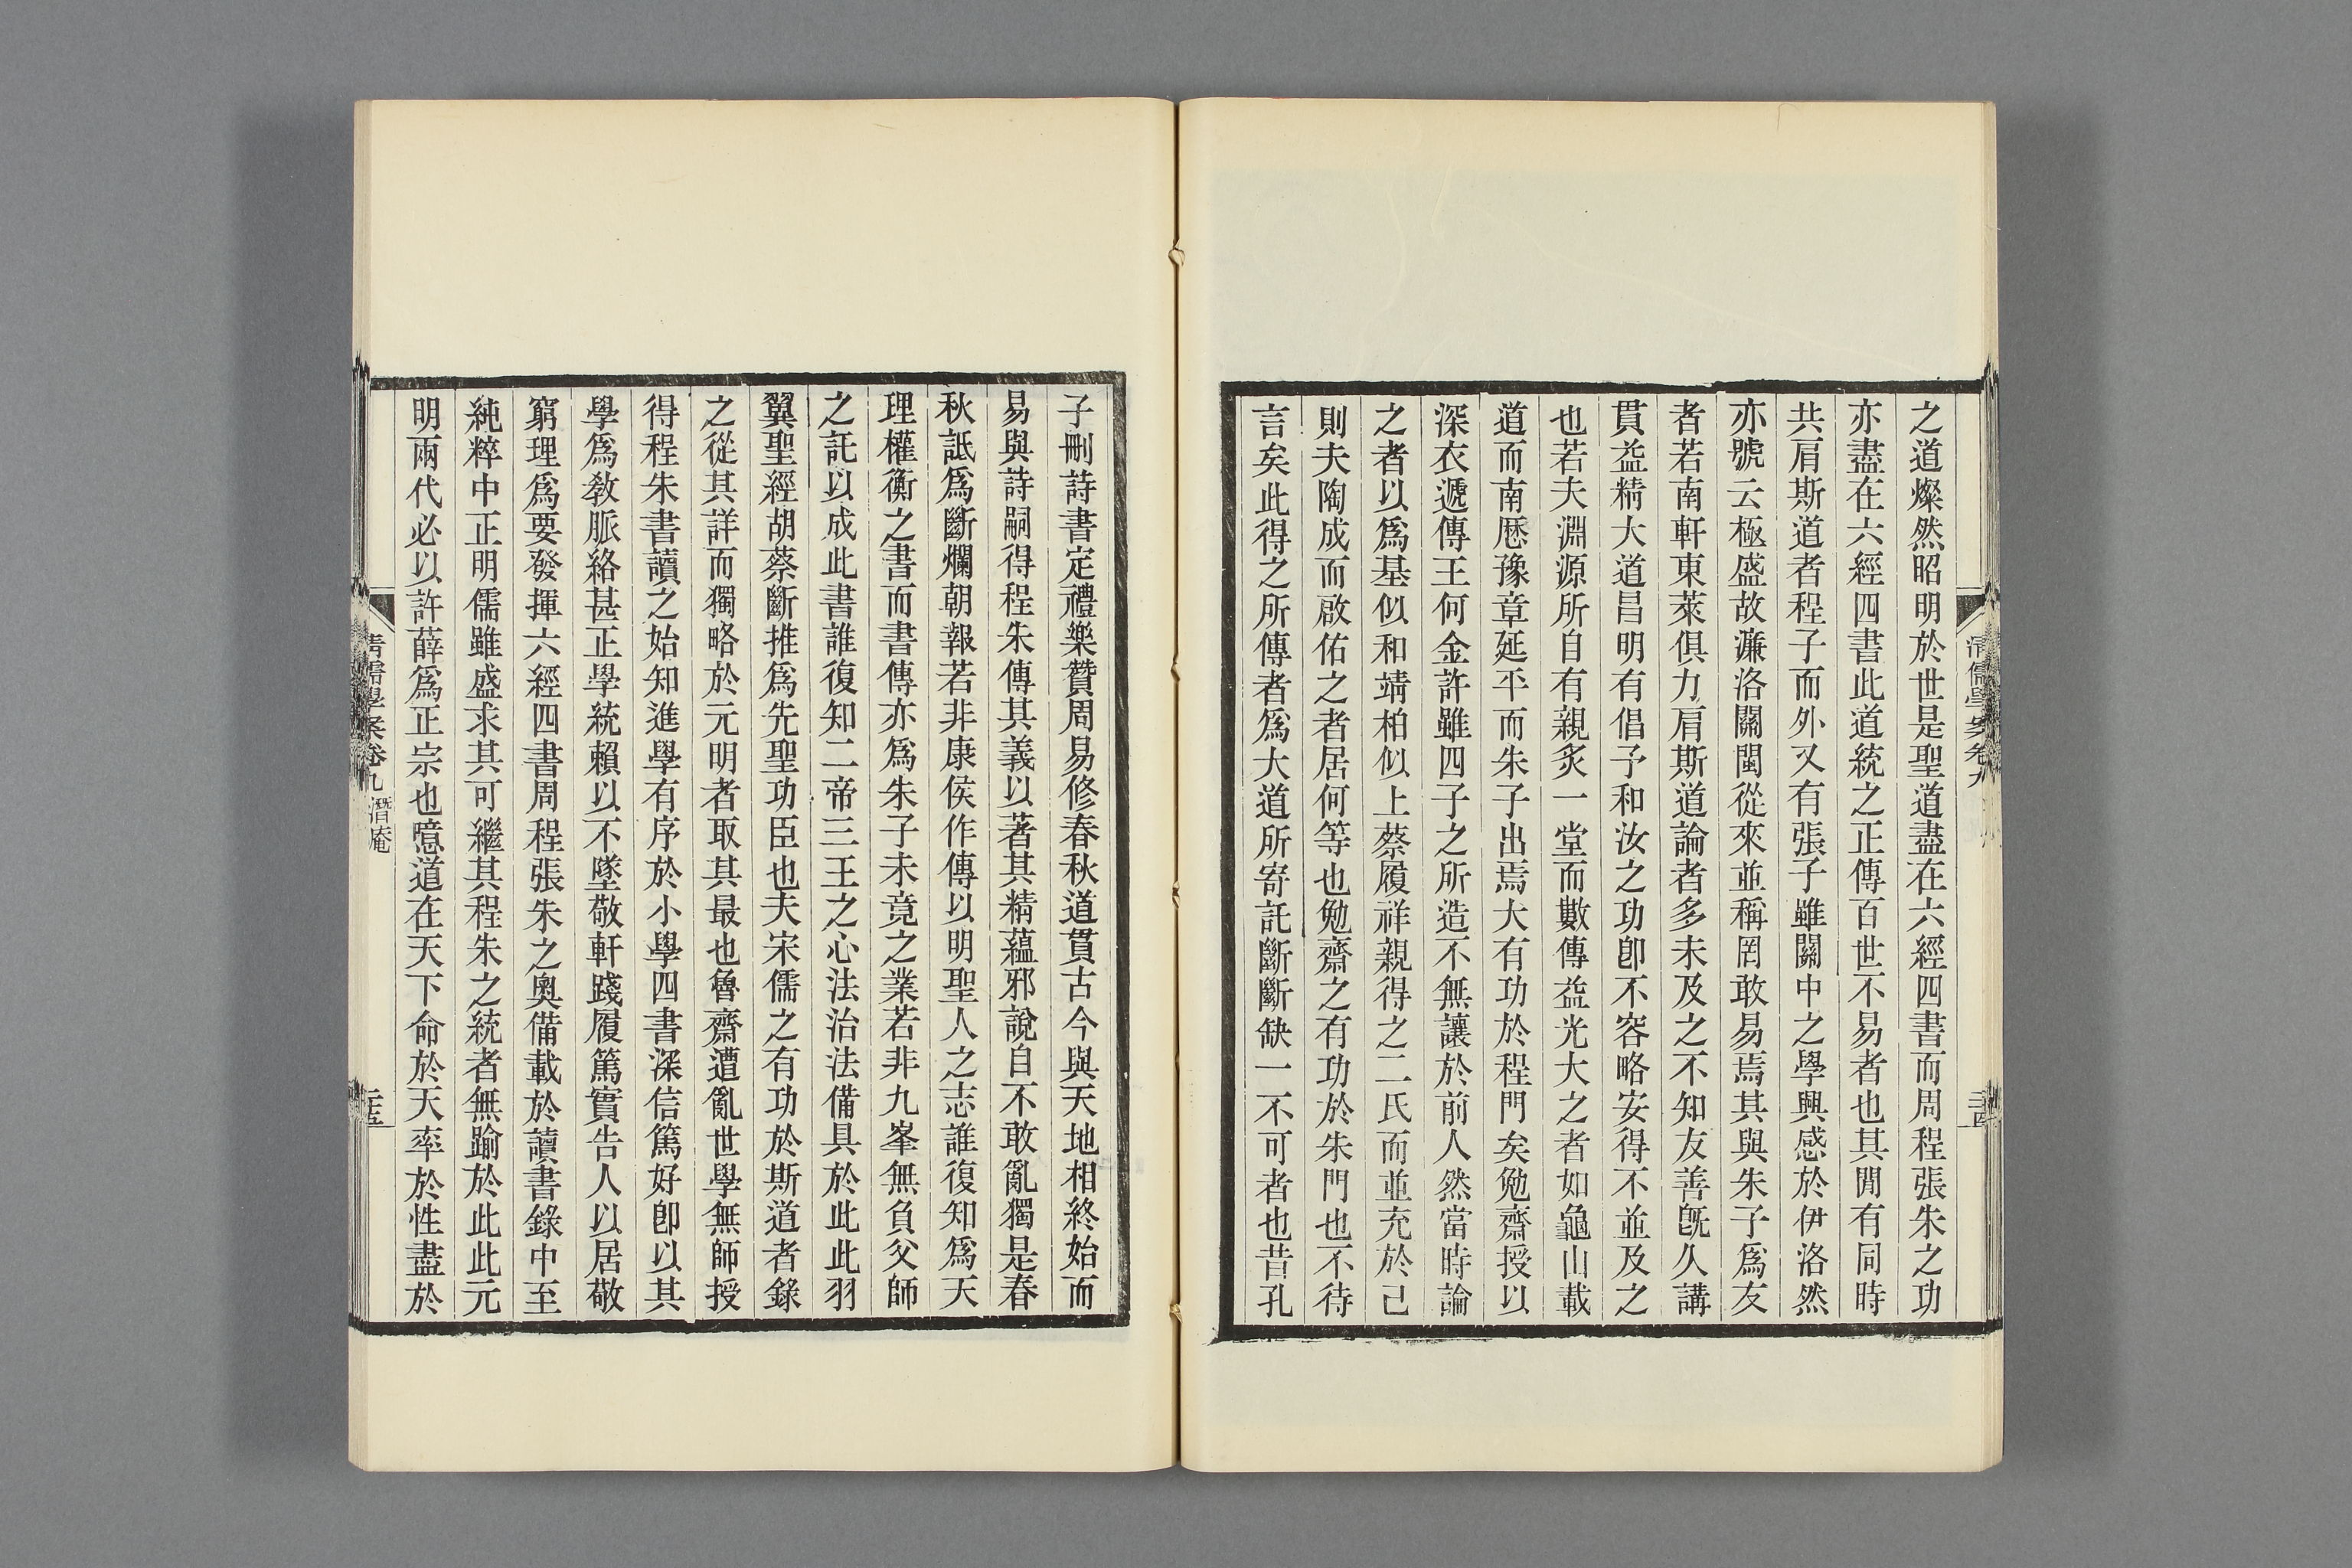 之道燦然昭明於世是聖道盡在六經四書而周程張朱之功
亦盡在六經四書此道統之正傳百世不易者也其閒有同時
共肩斯道者程子而外又有張子雖關中之學興感於伊洛然
亦號云極盛故濂洛關閩從來並稱罔敢易焉其與朱子爲友
者若南軒東萊俱力肩斯道論者多未及之不知友善旣久講
貫益精大道昌明有倡予和汝之功卽不容略安得不並及之
也若夫淵源所自有親炙一堂而數傳益光大之者如龜山載
道而南厯豫章延平而朱子出焉大有功於程門矣勉齋授以
深衣遞傳王何金許雖四子之所造不無讓於前人然當時論
之者以爲基似和靖柏似上蔡履祥親得之二氏而並充於己
則夫陶成而啟佑之者居何等也勉齋之有功於朱門也不待
言矣此得之所傳者爲大道所寄託斷斷缺一不可者也昔孔
清儒學案卷九
三四
子刪詩書定禮樂贊周易修春秋道貫古今與天地相終始而
易與詩嗣得程朱傳其義以著其精蘊邪說自不敢亂獨是春
秋詆爲斷爛朝報若非康侯作傳以明聖人之志誰復知爲天
理權衡之書而書傳亦爲朱子未竟之業若非九峯無負父師
之託以成此書誰復知二帝三王之心法治法備具於此此羽
翼聖經胡蔡斷推爲先聖功臣也夫宋儒之有功於斯道者錄
之從其詳而獨略於元明者取其最也魯齋遭亂世學無師授
得程朱書讀之始知進學有序於小學四書深信篤好卽以其
學爲教脈絡甚正學統賴以不墜敬軒踐履篤實告人以居敬
窮理爲要發揮六經四書周程張朱之奧備載於讀書錄中至
純粹中正明儒雖盛求其可繼其程朱之統者無踰於此此元
明兩代必以許薛爲正宗也噫道在天下命於天率於性盡於
清儒學案卷九 潛庵
三五